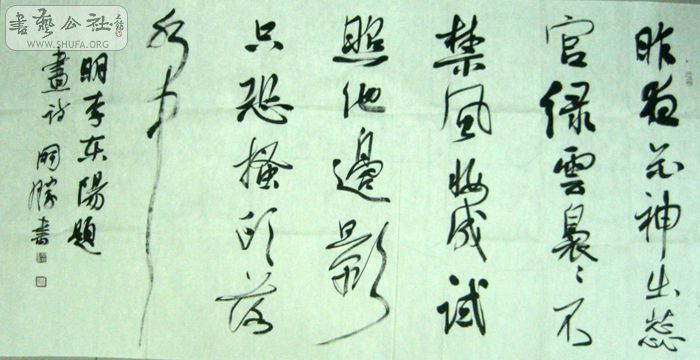 昨夜花神出蕊
宫绿雲裊々不
禁風妝成試
照池邊影
只恐搔頭落
水中
明李东陽題
畫詩 書
書藝公社
WWW.SHUFA.ORG